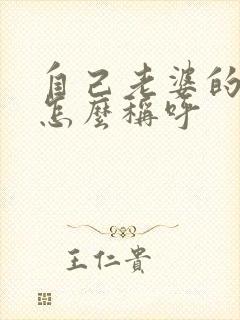 自己老婆的
怎麼稱呼
王仁貴